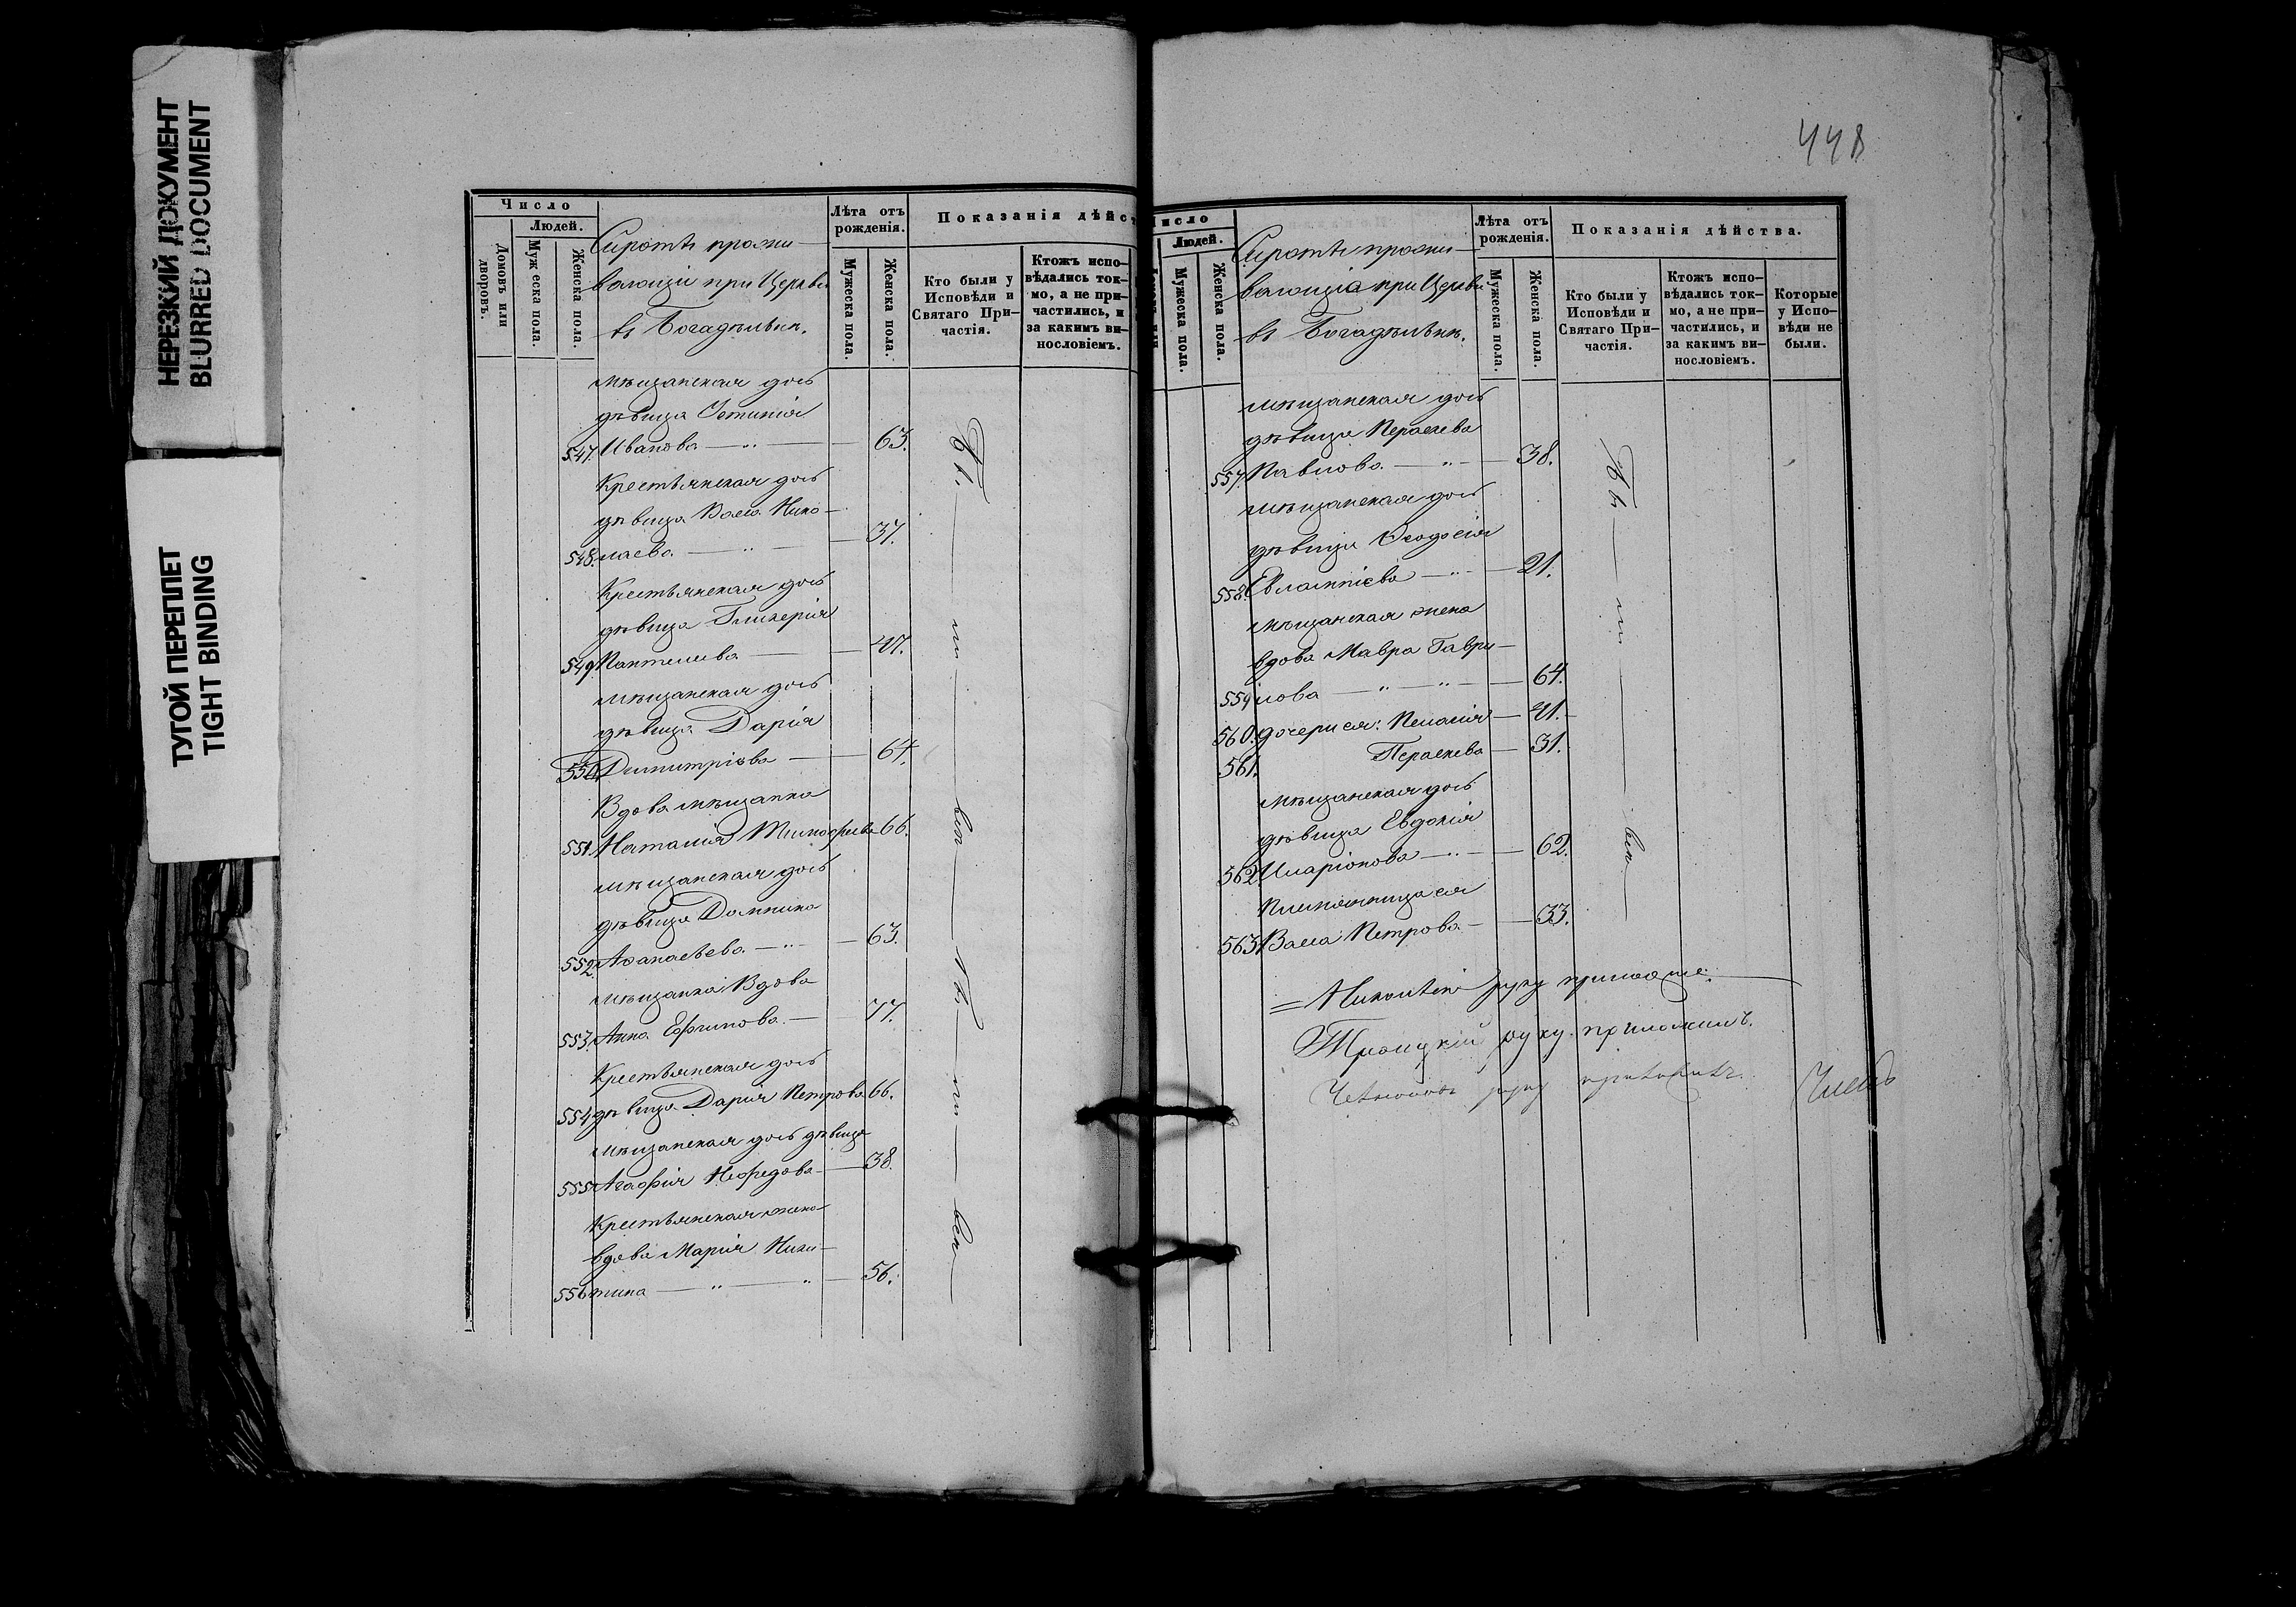 НЕРЕЗКИЙ ДОКУМЕНТ
BLURRED DOCUMENT
ТУГОЙ ПЕРЕПЛЕТ
TIGHT BINDING
Число
Людей.
Домовъ или дворовъ.
Мужеска пола.
Женска пола.
Сиротѣ прожи-
вающіи при Церкви
въ Богадѣльнѣ.
Лѣта отъ рожденія.
Мужеска пола.
Женска пола.
Показанія дѣйст
Кто были у Исповѣди и Святаго При-частія.
Ктожъ испо-вѣдались ток-мо, а не при-частились, и за какимъ ви-нословіемъ.
мѣщанская дочь
дѣвица Устинія
547. Иванова — 63.
Крестьянская дочь
дѣвица Васса Нико-
548. лаева — 37.
Крестьянская дочь
дѣвица Гликерія
549. Пантелиева — 47.
мѣщанская дочь
дѣвица Дарія
550. Димитріева — 64.
Вдова мѣщанка
551. Наталія Тимофиева 66.
мѣщанская дочь
дѣвица Домника
552. Аѳанасьева — 63.
мѣщанка Вдова
553. Анна Ефимова — 77.
Крестьянская дочь
554. дѣвица Дарія Петрова 66.
мѣщанская дочь дѣвица
555. Агафія Нефедова — 38.
Крестьянская жена
вдова Марія Ники-
556. тина — 56.
448
Число
Людей.
Мужеска пола.
Женска пола.
Сиротѣ прожи-
вающіа при Церкви
въ Богадѣльнѣ.
Лѣта отъ рожденія.
Мужеска пола.
Женска пола.
Показанія дѣйства.
Кто были у Исповѣди и Святаго При-частія.
Ктожъ испо-вѣдались ток-мо, а не при-частились, и за какимъ ви-нословіемъ.
Которые у Испо-вѣди не были.
мѣщанская дочь
дѣвица Параскева
557. Павлова — 38.
мѣщанская дочь
дѣвица Ѳеодосія
558. Евлампіева — 21.
мѣщанская жена
вдова Мавра Гаври-
559. лова — 64.
560. дочери ея: Пелагія — 41.
561. Параскева — 31.
мѣщанская дочь
дѣвица Евдокія
562. Иларіонова — 62.
Племянница ея
563. Васса Петрова — 33.
руку приложил.
Троицкій руку приложилъ.
руку приложилъ.